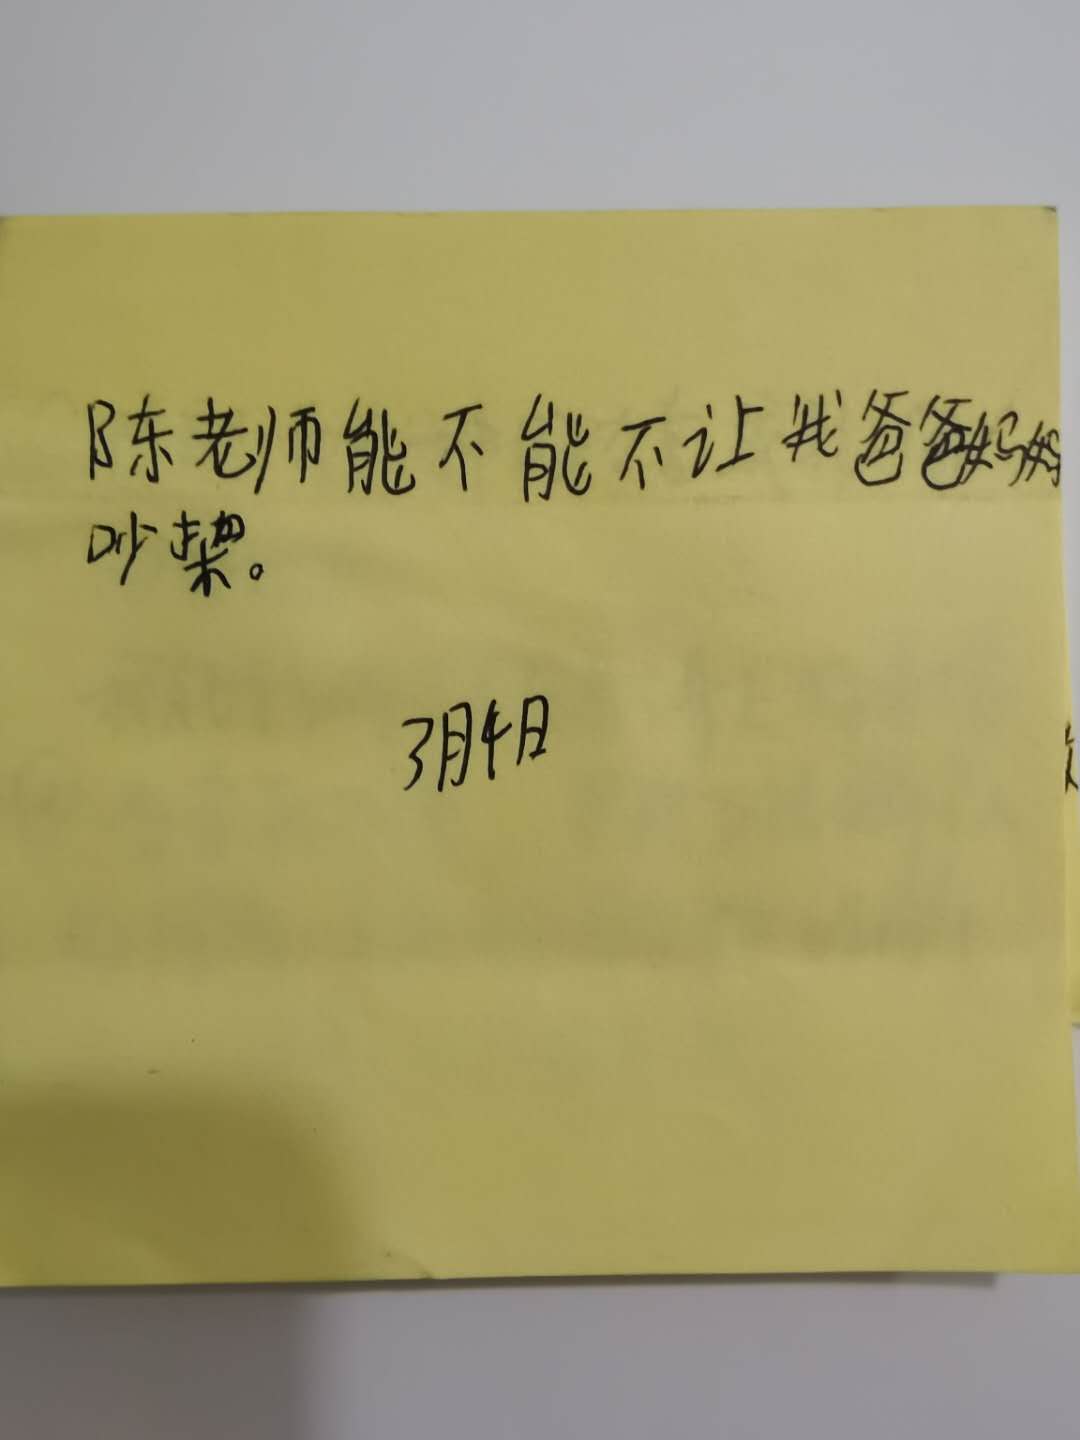 陈老师能不能不让我爸爸妈妈
吵架。
3月4日